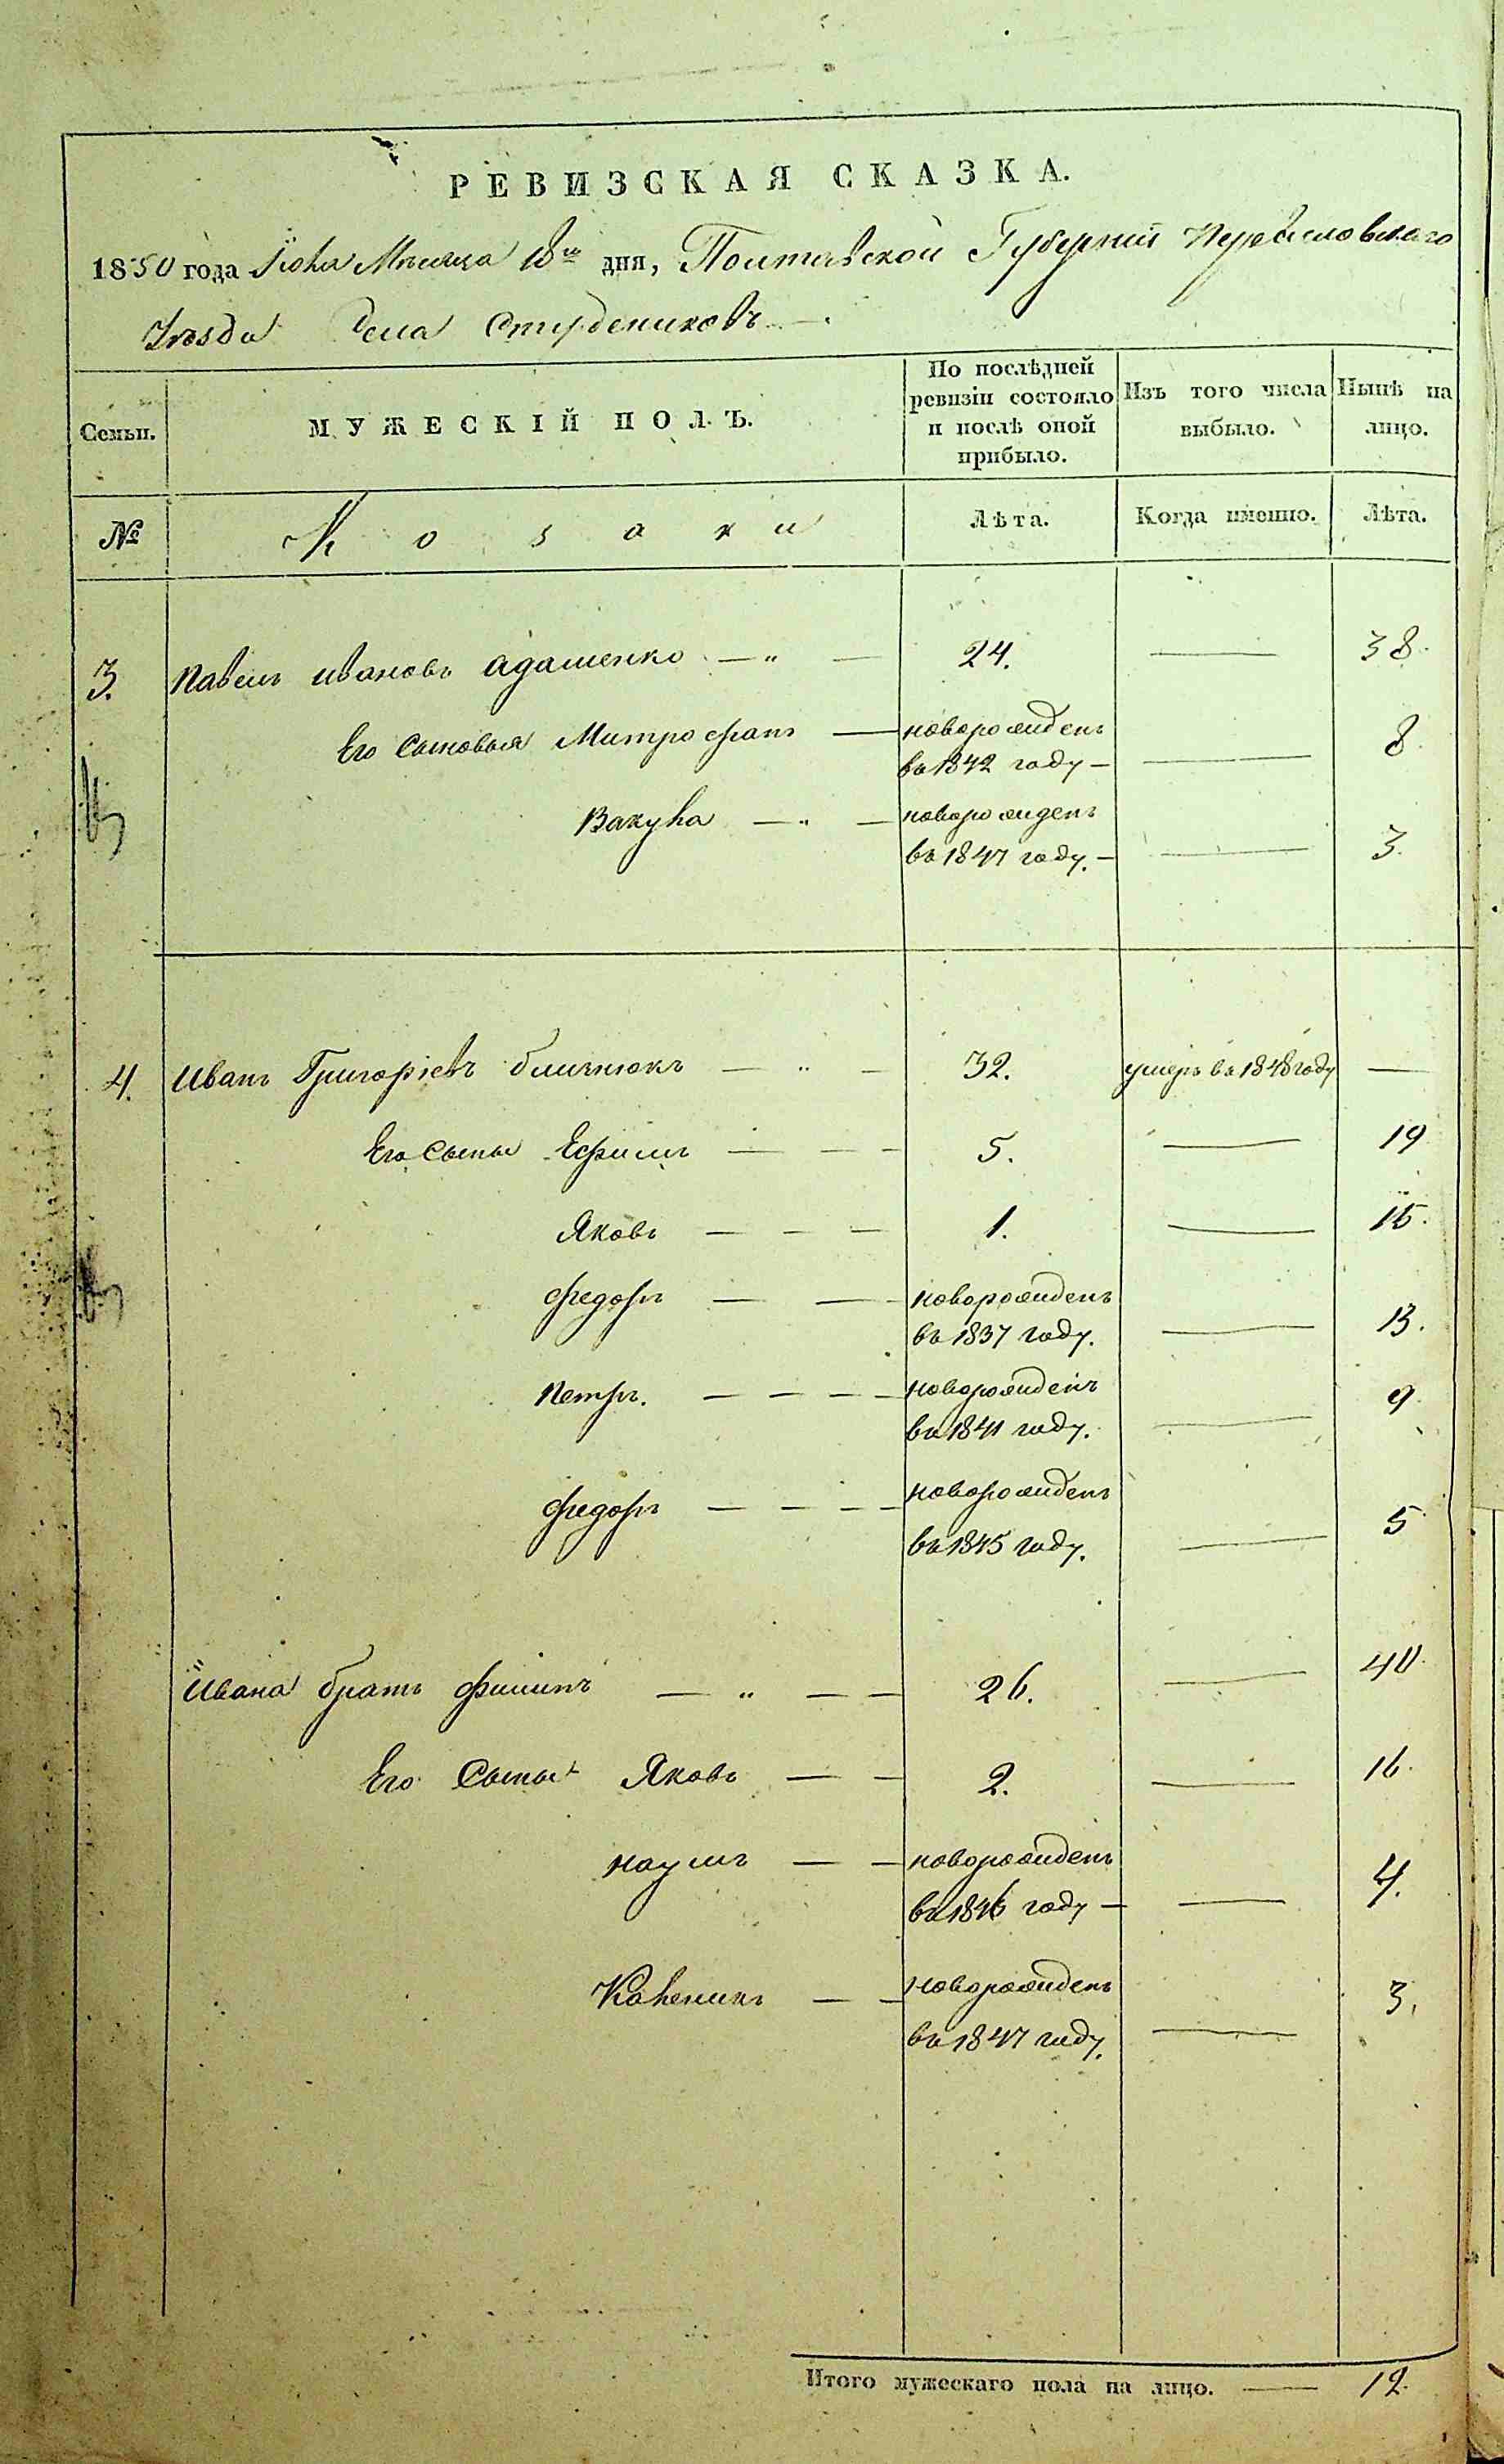 РЕВИЗСКАЯ СКАЗКА.
1850 года Іюня Мѣсяца 18го дня, Полтавской Губерніи Переяславскаго
Уѣзда Села Студениковъ
Семьи. МУЖЕСКІЙ ПОЛЪ. По послѣдней ревизіи состояло и послѣ оной прибыло. Изъ того числа выбыло. Нынѣ на лицо.
№ Козаки Лѣта. Когда именно. Лѣта.
3. Павелъ Ивановъ Адаменко — " — 24. — 38.
Его Сыновья Митрофанъ — новорожденъ
въ 1842 году — — 8.
Вакула — " — новорожденъ
въ 1847 году. — — 3.
4. Иванъ Григоріевъ Близнюкъ — " — 32. умеръ въ 1848 году —
Его Сыны Ефимъ — — — 5. — 19
Яковъ — — — 1. — 15.
Федоръ — — новорожденъ
въ 1837 году. — 13.
Петръ. — — — — новорожденъ
въ 1841 году. — 9.
Федоръ — — — — новорожденъ
въ 1845 году. — 5
Ивана братъ Филипъ — " — — 26. — 40.
Его Сыны Яковъ — — 2. — 16.
Наумъ — — новорожденъ
въ 1846 году — — 4.
новорожденъ
въ 1847 году. — 3.
Итого мужескаго пола на лицо. — 12.